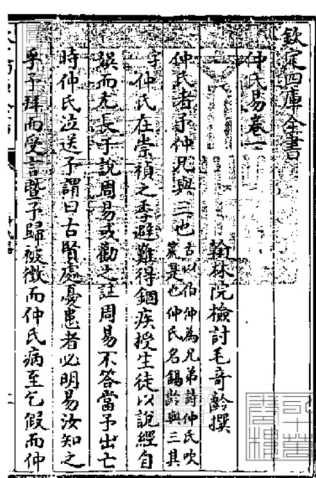 欽定四庫全書
仲氏易卷一
翰林院檢討毛奇齡撰
仲氏者予仲兄與三也古以伯仲為兄弟詩仲氏吹
箎是也仲氏名錫齡與三其
字仲氏在崇禎之季避難得錮疾授生徒以說經自
娱而尤長于說周易或勸之註周易不答當予出亡
時仲氏泣送予謂曰古賢處憂患者必明易汝知之
乎予拜而受言暨予歸被徵而仲氏病至乞假而仲